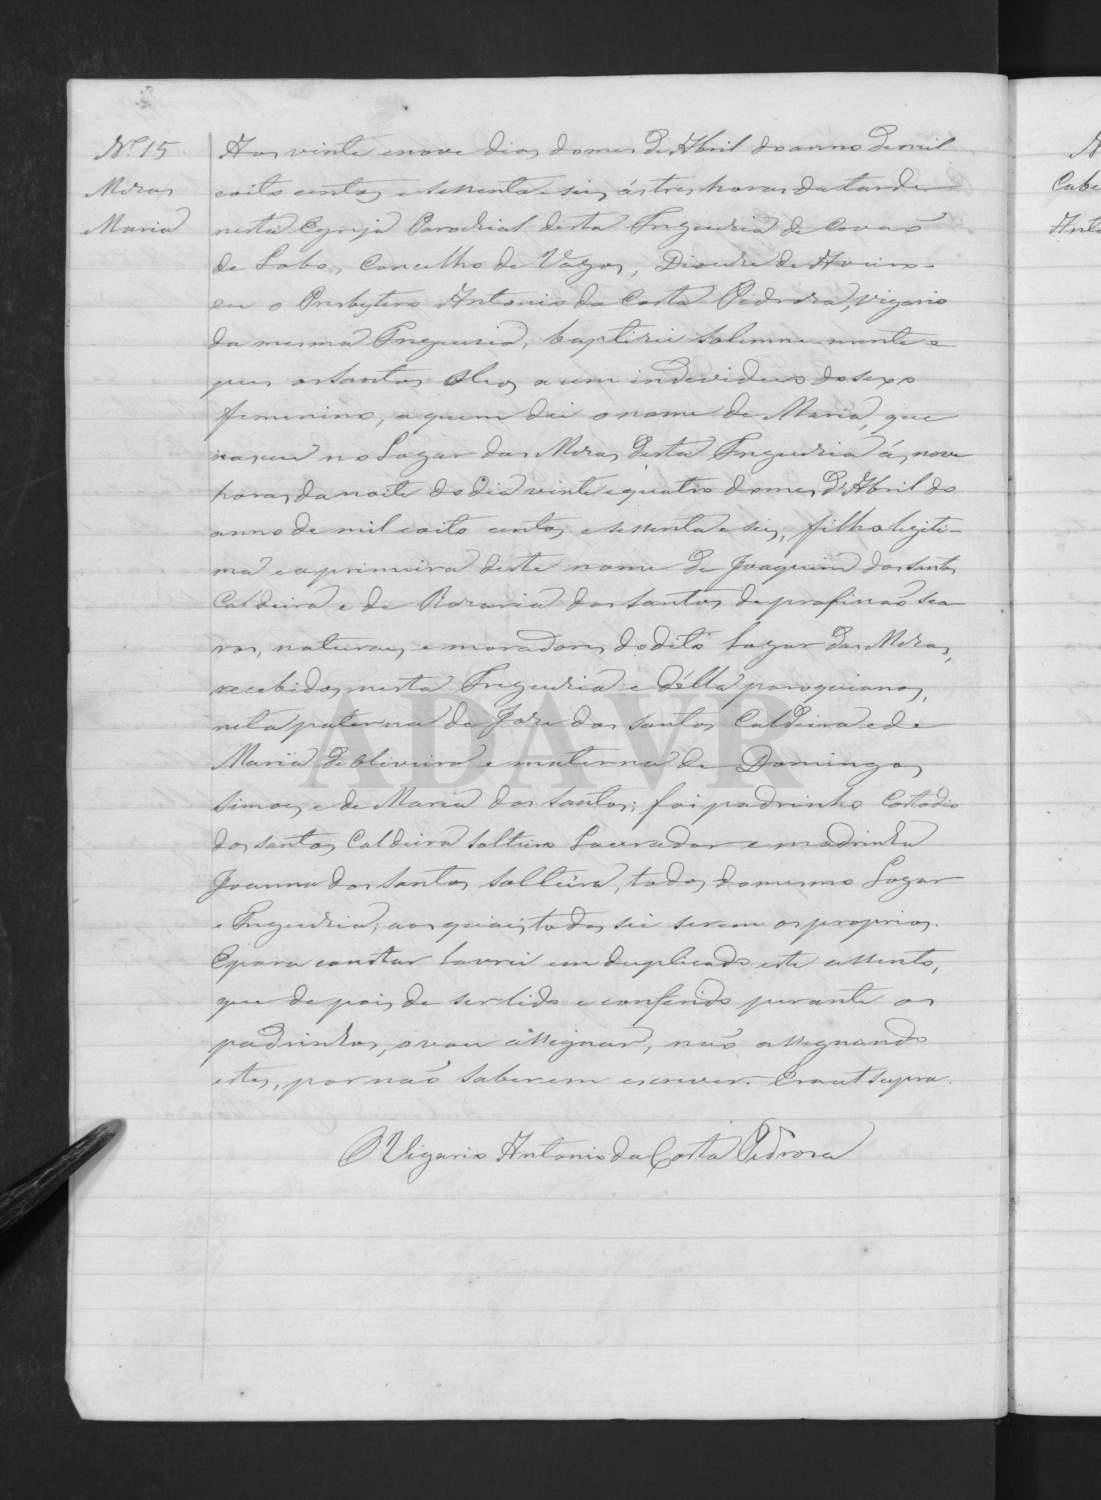 Nº 15
Mesas
Maria
Aos vinte enove dias domes de Abril doanno demil
eoito centos e sessenta e seis, ástres horas datarde
nesta Egreja Parochial desta Freguezia de Covaõ
de Lobo, Concelho de Vagos, Diocese de Aveiro
eu o Presbytero Antonio da Costa Pedrosa, Vigario
da mesma Freguesia, baptisei solemne-mente e
pus ossantos oleos aum individuo dosexo
femenino, aquem dei onome de Maria, que
nasceu no Logar das Mesas desta Freguezia ás nove
horas danoite dodia vinte equatro domes d'Abril do
anno de mil eoito centos e sessenta e seis, filha legiti-
ma eaprimeira deste nome de Joaquim dos santos
Caldeira e de Rozaria dos santos de profissaõ sea
ros, naturaes e moradores dodito lugar das Mesas,
recebidos nesta Freguezia e d'élla paroquianos,
neta paterna de Jose dos santos Caldeira ede
Maria de Oliveira e materna de Domingos
Simoes e de Maria dos santos; foi padrinho Costodio
dos santos Caldeira solteiro Lavrador e madrinha
Joanna dos santos solteira, todos domesmo Logar
e Freguezia, aos quaes todos sei serem osproprios.
Epara constar lavrei em duplicado este assento,
que de pois de serlido e conferido perante os
padrinhos, ovou assignar, naõ assignando
estes, por naõ saberem escrever. Eraut supra.
O Vigario Antonio da Costa Pedrosa
ADAVR